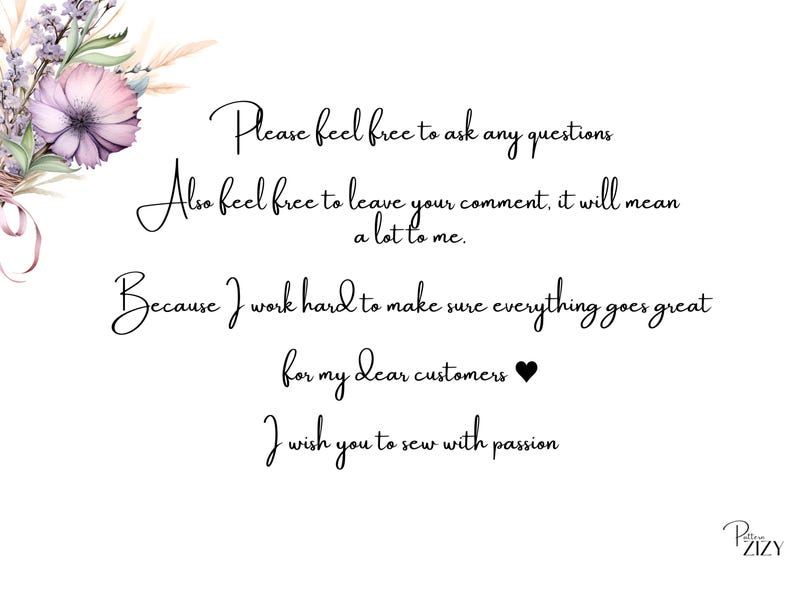 Please feel free to ask any questions
Also feel free to leave your comment, it will mean
a lot to me.
Because I work hard to make sure everything goes great
for my dear customers ♥
I wish you to sew with passion
Pattern
ZIZY